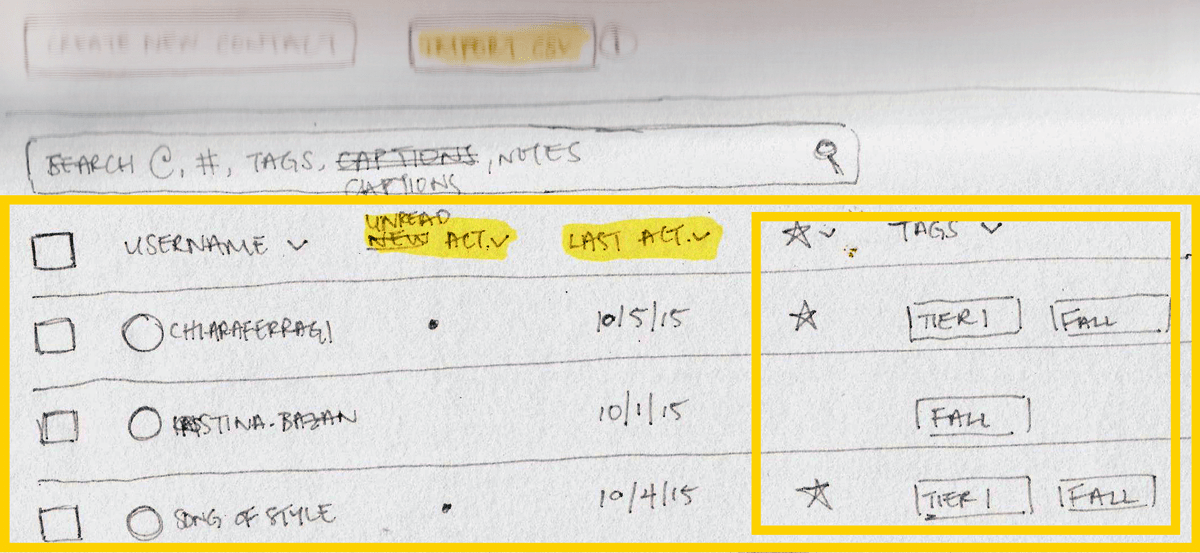 CREATE NEW CONTACT IMPORT CSV
SEARCH @, #, TAGS, CAPTIONS, NOTES
CAPTIONS
USERNAME UNREAD NEW ACT. LAST ACT. TAGS
CHIARAFERRAGI 10/5/15 TIER 1 FALL
10/1/15 FALL
SONG OF STYLE 10/4/15 TIER 1 FALL